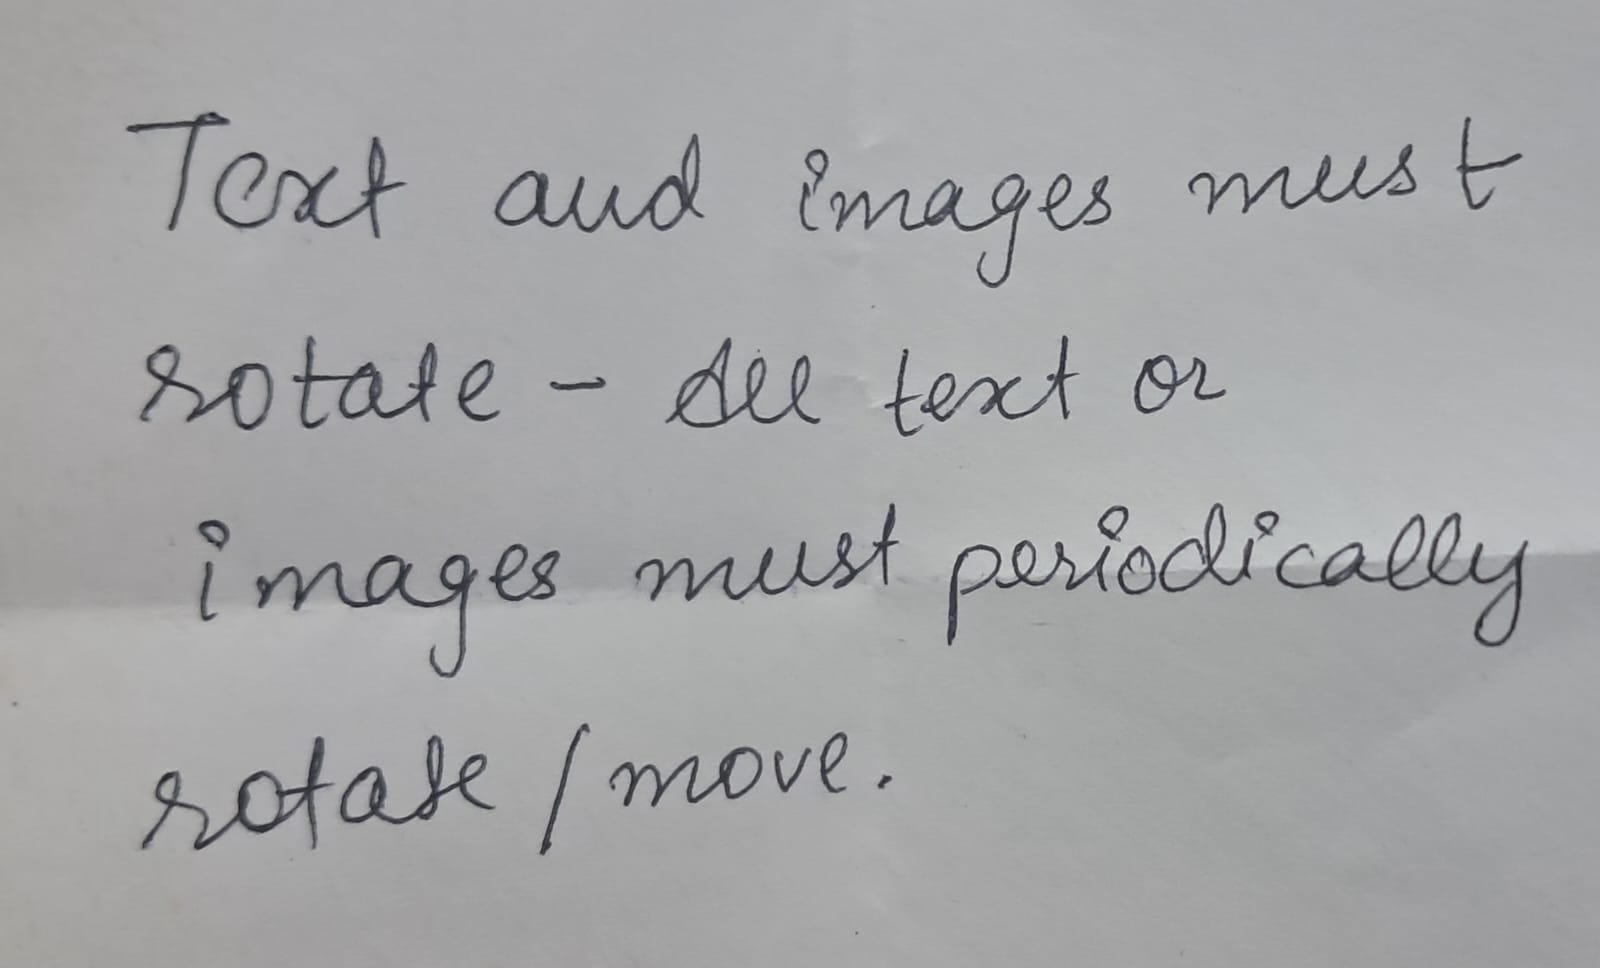 Text and images must
rotate - See text or
images must periodically
rotate / move.